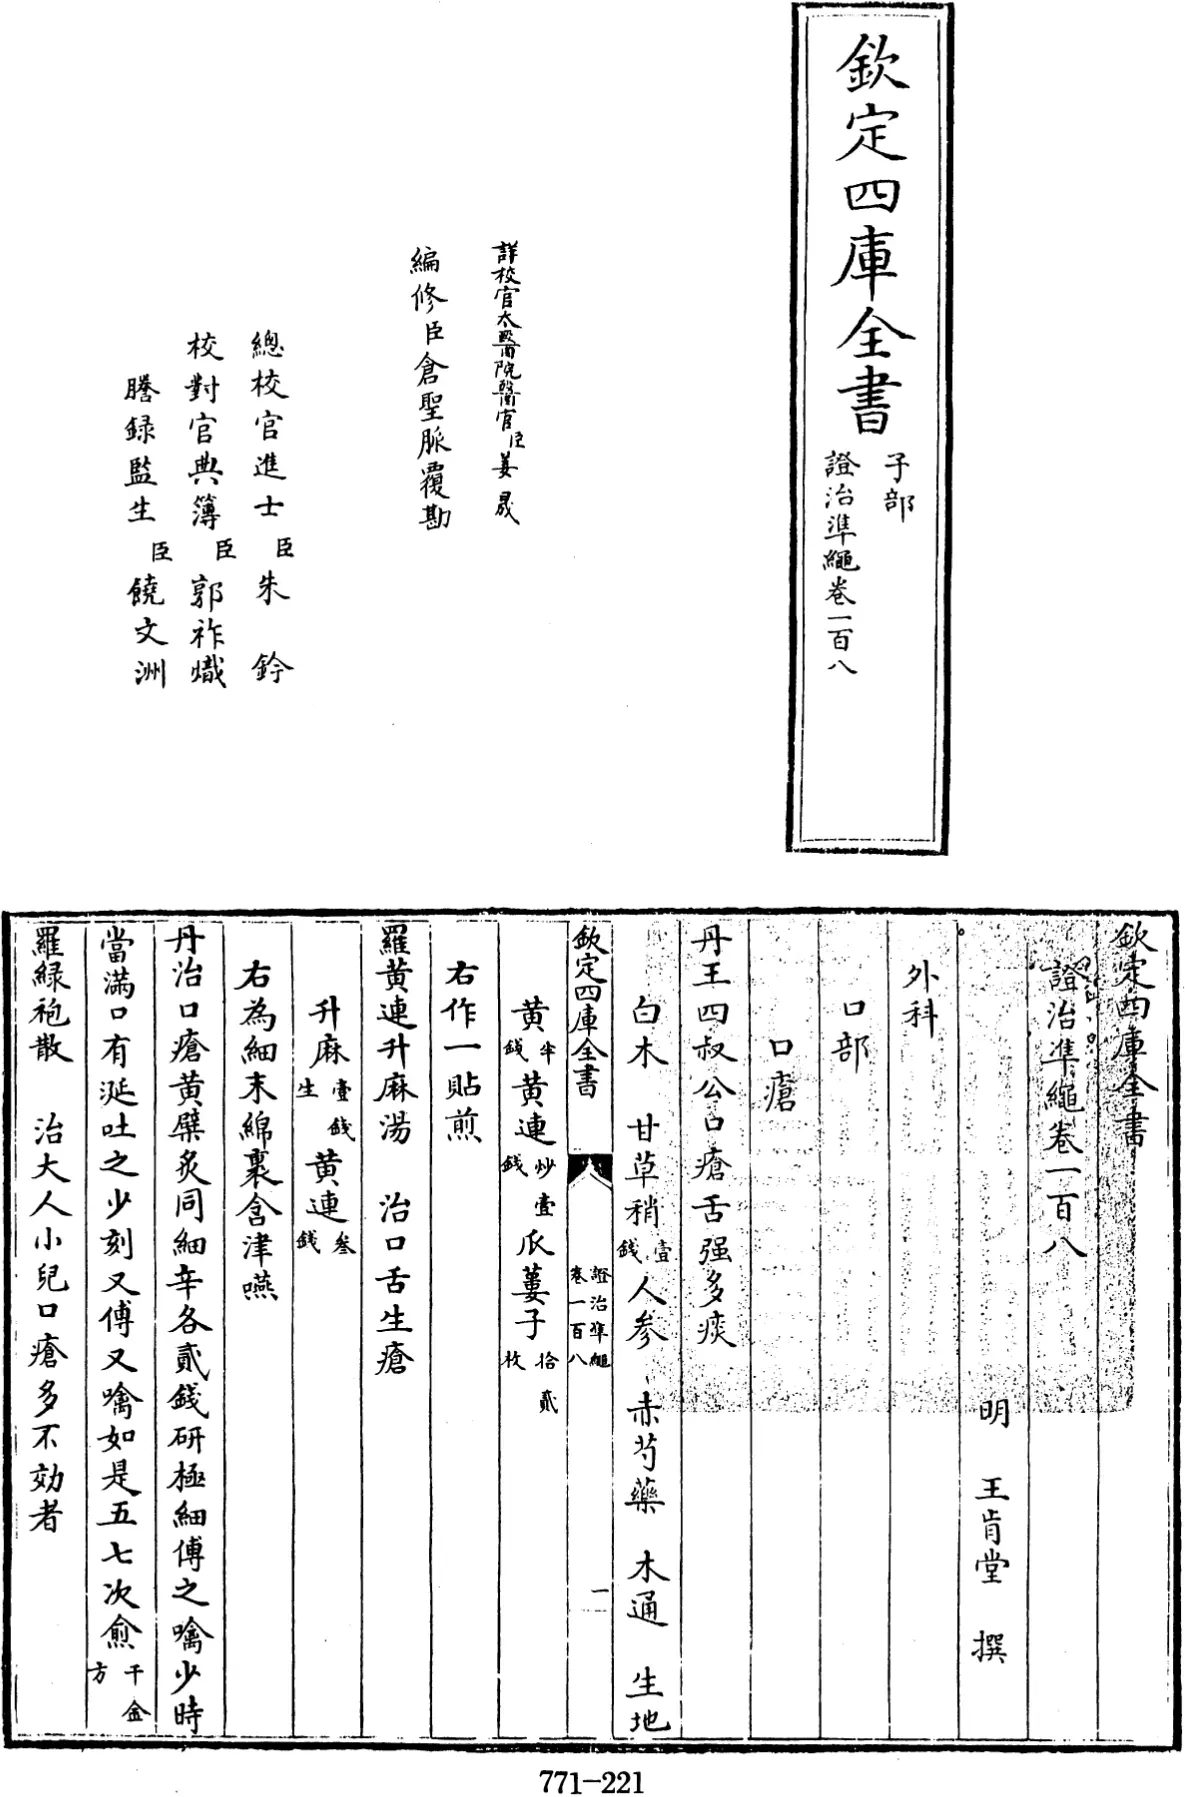 欽定四庫全書
子部
證治準繩卷一百八
詳校官太醫院醫官臣姜晟
編修臣倉聖脈覆勘
總校官進士臣朱鈐
校對官典簿臣郭祚熾
謄録監生臣饒文洲
欽定四庫全書
證治準繩卷一百八
明 王肯堂 撰
外科
口部
口瘡
丹王四叔公口瘡舌强多痰
白木 甘草稍壹錢人參 赤芍藥 木通 生地
欽定四庫全書 證治準繩卷一百八 一
黄半錢黄連炒壹錢瓜蔞子拾貳枚
右作一貼煎
羅黄連升麻湯 治口舌生瘡
升麻壹錢生黄連叁錢
右為細末綿裹含津嚥
丹治口瘡黄蘗炙同細辛各貳錢研極細傅之噙少時
當滿口有涎吐之少刻又傅又噙如是五七次愈千金方
羅緑袍散 治大人小兒口瘡多不効者
771-221